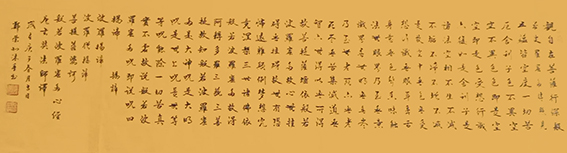 觀自在菩薩行深般
若波羅蜜多時照見
五蘊皆空度一切苦
厄舍利子色不異空
空不異色色即是空
空即是色受想行識
亦復如是舍利子是
諸法空相不生不滅
不垢不淨不增不減
是故空中無色無受
想行識無眼耳鼻舌
身意無色聲香味觸
法無眼界乃至無意
識界無無明亦無無
明盡乃至無老死亦
無老死盡無苦集滅
道無智亦無得以無所
得故菩提薩埵依般若
波羅蜜多故心無罣
礙無罣礙故無有恐
怖遠離顛倒夢想究
竟涅槃三世諸佛依
般若波羅蜜多故得
阿耨多羅三藐三菩
提故知般若波羅蜜
多是大神咒是大明
咒是無上咒是無等
等咒能除一切苦真
實不虛故說般若波
羅蜜多咒即說咒曰
揭諦 揭諦
波羅揭諦
波羅僧揭諦
菩提薩婆訶
般若波羅蜜多心經